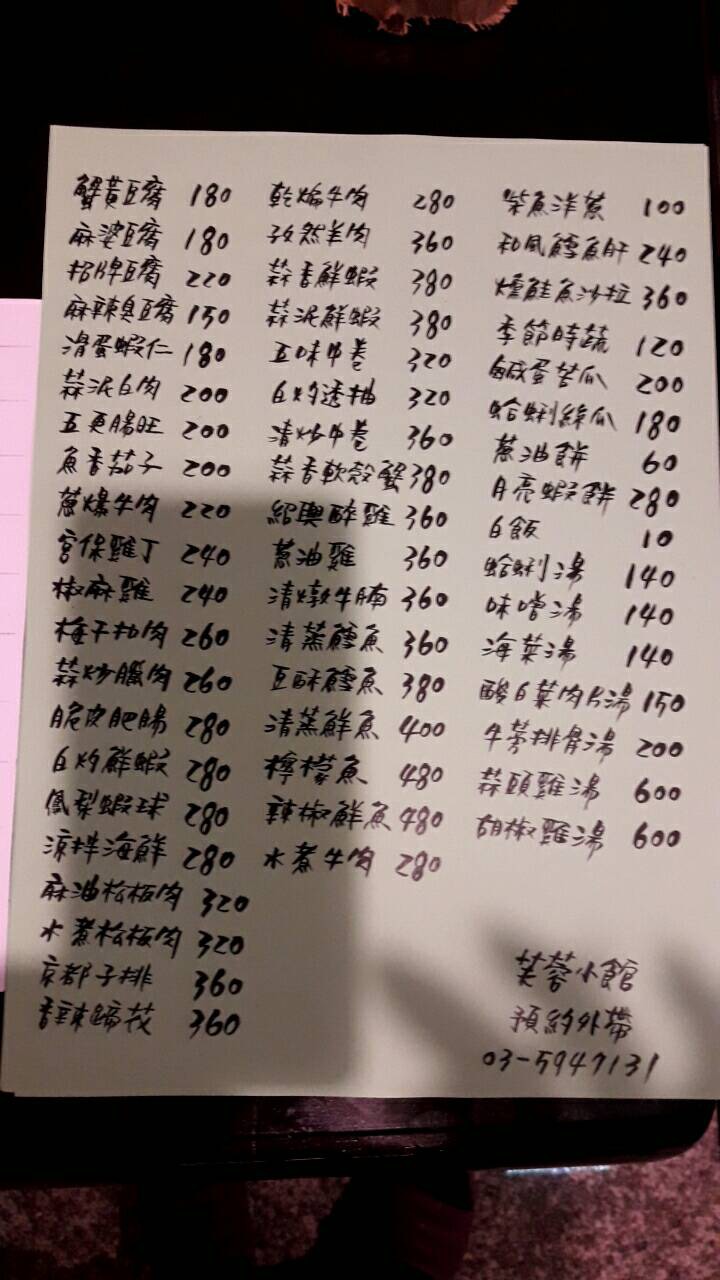 蟹黃豆腐 180
麻婆豆腐 180
招牌豆腐 220
麻辣臭豆腐 150
滑蛋蝦仁 180
蒜泥白肉 200
五更腸旺 200
魚香茄子 200
蔥爆牛肉 220
宮保雞丁 240
椒麻雞 240
梅干扣肉 260
蒜炒臘肉 260
脆皮肥腸 280
白灼鮮蝦 280
鳳梨蝦球 280
涼拌海鮮 280
麻油松板肉 320
水煮松板肉 320
京都子排 360
香辣蹄花 360
乾煸牛肉 280
孜然羊肉 360
蒜香鮮蝦 380
蒜泥鮮蝦 380
五味中卷 320
白灼透抽 320
清炒中卷 360
蒜香軟殼蟹 380
紹興醉雞 360
蔥油雞 360
清燉牛腩 360
清蒸鱈魚 360
豆酥鱈魚 380
清蒸鮮魚 400
檸檬魚 480
辣椒鮮魚 480
水煮牛肉 280
柴魚洋蔥 100
和風鱈魚肝 240
燻鮭魚沙拉 360
季節時蔬 120
鹹蛋苦瓜 200
蛤蜊絲瓜 180
蔥油餅 60
月亮蝦餅 280
白飯 10
蛤蜊湯 140
味噌湯 140
海菜湯 140
酸白菜肉片湯 150
牛蒡排骨湯 200
蒜頭雞湯 600
胡椒雞湯 600
芙蓉小館
預約外帶
03-5947131